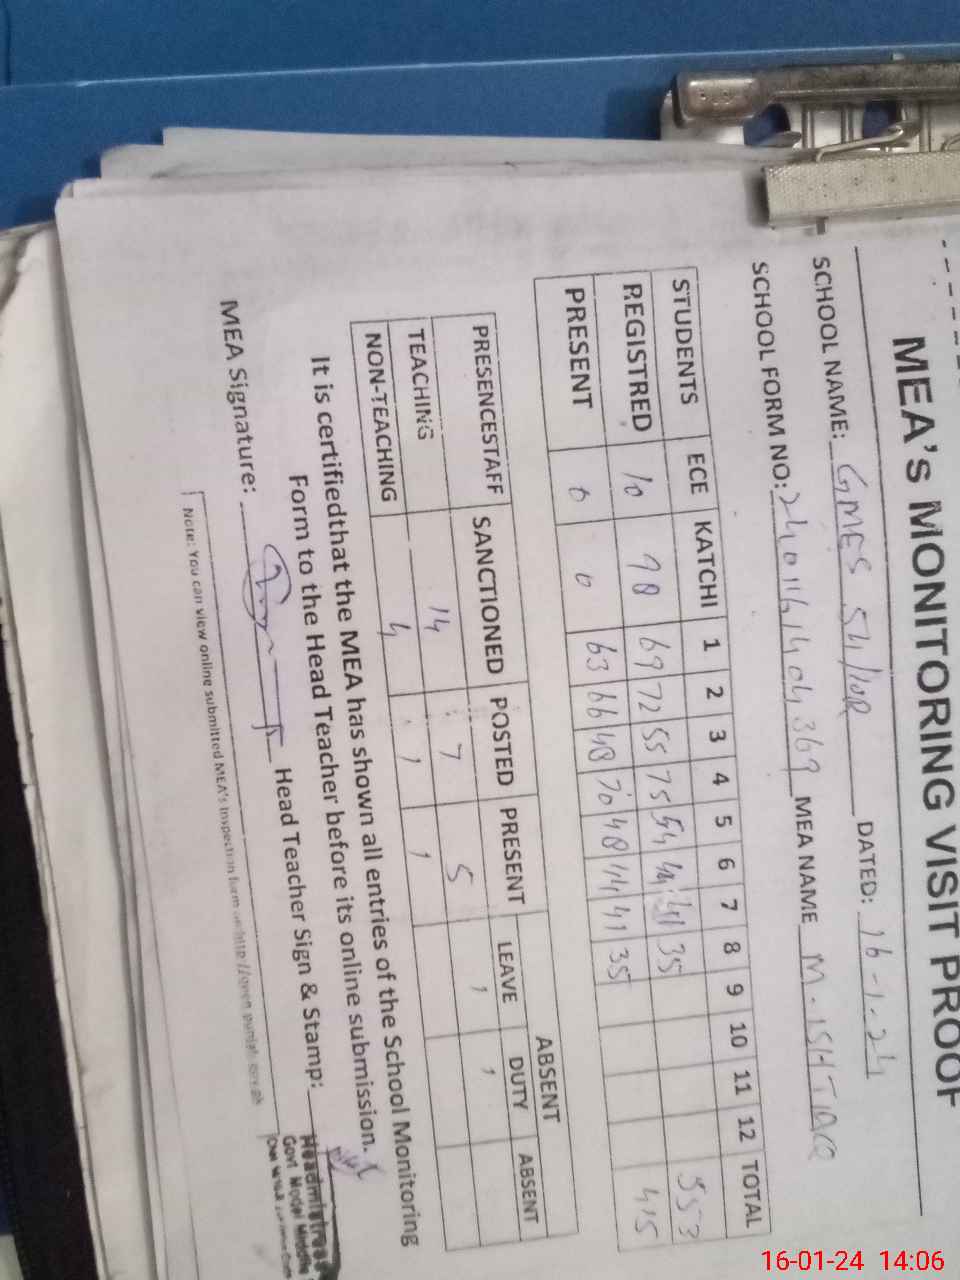 MEA's MONITORING VISIT PROOF
SCHOOL NAME: GMES 54/10R DATED: 16-1-24
SCHOOL FORM NO: MEA NAME M. ISHTIAQ
STUDENTS ECE KATCHI 1 2 3 4 5 6 7 8 9 10 11 12 TOTAL
REGISTRED 10 98 69 72 55 75 54 44 41 35 553
PRESENT 0 0 63 66 48 70 48 44 41 35 415
ABSENT
PRESENCESTAFF SANCTIONED POSTED PRESENT LEAVE DUTY ABSENT
TEACHING 14 7 5 1 1
NON-TEACHING 4 1 1
It is certifiedthat the MEA has shown all entries of the School Monitoring
Form to the Head Teacher before its online submission.
MEA Signature: Head Teacher Sign & Stamp:
Headmistress
Govt. Model Middle
Note: You can view online submitted MEA's Inspection form on
16-01-24 14:06